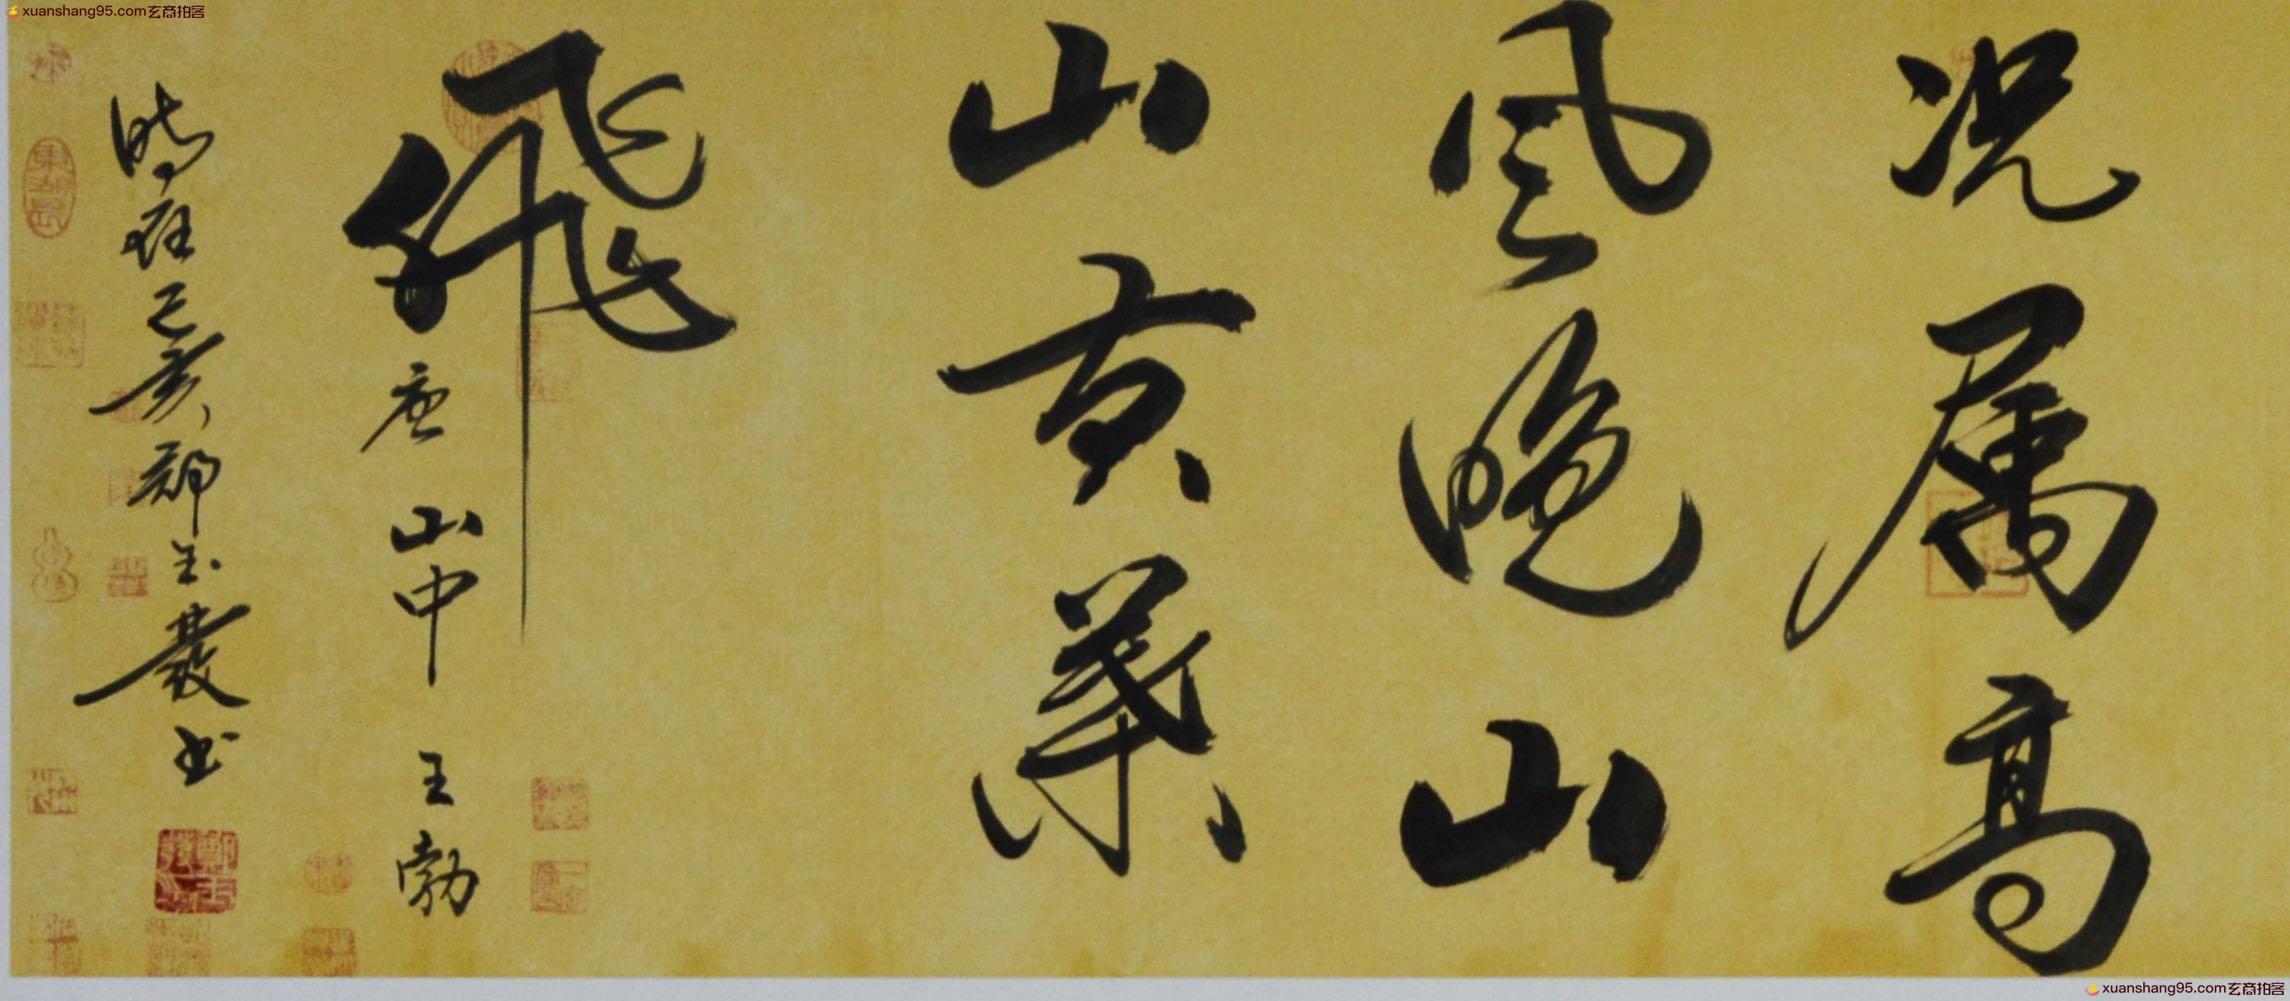 xuanshang95.com玄商拍客
况属高
风晚山
山黄叶
飛
唐 山中 王勃
时在己亥郑玉发书
xuanshang95.com玄商拍客